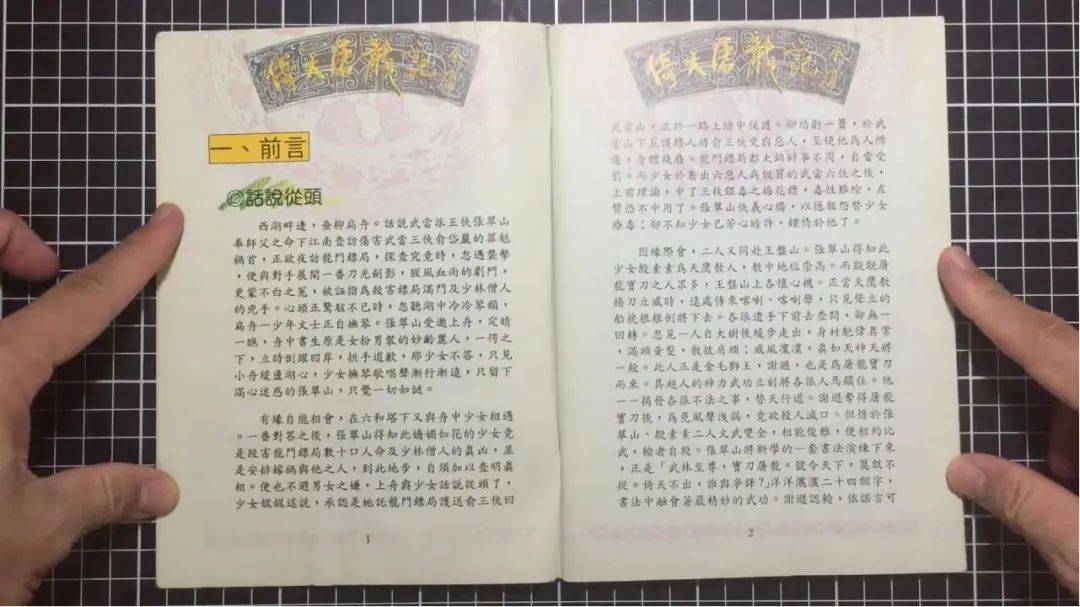 倚天屠龍記
一、前言
◎話說從頭
西湖畔邊,垂柳扁舟。話說武當派五俠張翠山
奉師父之命下江南查訪傷害武當三俠俞岱巖的罪魁
禍首,正欲夜訪龍門鏢局,探查究竟時,忽遇襲擊
,便與對手展開一番刀光劍影,腥風血雨的劇鬥,
更蒙不白之冤,被誣指為殺害鏢局滿門及少林僧人
的兇手。心頭正驚駭不已時,忽聽湖中泠泠琴韻,
扁舟一少年文士正自撫琴。張翠山受邀上舟,定睛
一瞧,舟中書生原是女扮男裝的妙齡麗人,一愕之
下,立時倒躍回岸,拱手道歉,那少女不答,只見
小舟緩盪湖心,少女撫琴歌唱聲漸行漸遠,只留下
滿心迷惑的張翠山,只覺一切如謎。
有緣自能相會,在六和塔下又與舟中少女相遇
。一番對答之後,張翠山得知此嬌媚如花的少女竟
是殺害龍門鏢局數十口人命及少林僧人的真凶,並
是安排嫁禍與他之人,到此地步,自須加以查明真
相。便也不避男女之嫌,上舟與少女話說從頭了,
少女娓娓述說,承認是她託龍門鏢局護送俞三俠回
1
倚天屠龍記
武當山,並於一路上暗中保護。卻功虧一簣,於武
當山下見護鏢人將俞三俠交與惡人,至使他為人所
傷,身體殘廢。龍門鏢局都大錦辦事不周,自當受
罰。而少女於看出六惡人為假冒的武當六俠之後,
上前理論,中了三枚銀毒的梅花鏢,毒性難除,左
臂恐不中用了。張翠山俠義心腸,以德報怨替少女
療毒;卻不知少女已芳心暗許,鍾情於他了。
因緣際會,二人又同赴王盤山。張翠山得知此
少女殷素素為天鷹教人,教中地位崇高。而覬覦屠
龍寶刀之人眾多,王盤山上各懷心機。正當天鷹教
揚刀立威時,遠處傳來喀喇、喀喇聲,只見聳立的
船桅根根倒將下去。各派遣手下前去查問,卻無一
回轉。忽見一人自大樹後緩步走出,身材魁偉異常
,滿頭黃髮,散披肩頭;威風凜凜,真如天神天將
一般。此人正是金毛獅王,謝遜,也是為屠龍寶刀
而來。其超人的神力武功立刻將各派人馬鎮住。他
一一揭發各派不法之事,替天行道。謝遜奪得屠龍
寶刀後,為免風聲洩漏,竟欲殺人滅口。但惜於張
翠山、殷素素二人文武雙全,相貌俊雅,便相約比
武,輸者自殺。張翠山將新學的一套書法演練下來
,正是「武林至尊,寶刀屠龍。號令天下,莫敢不
從。倚天不出,誰與爭鋒?」洋洋灑灑二十四個字,
書法中融會著最精妙的武功。謝遜認輸,依諾言可
2